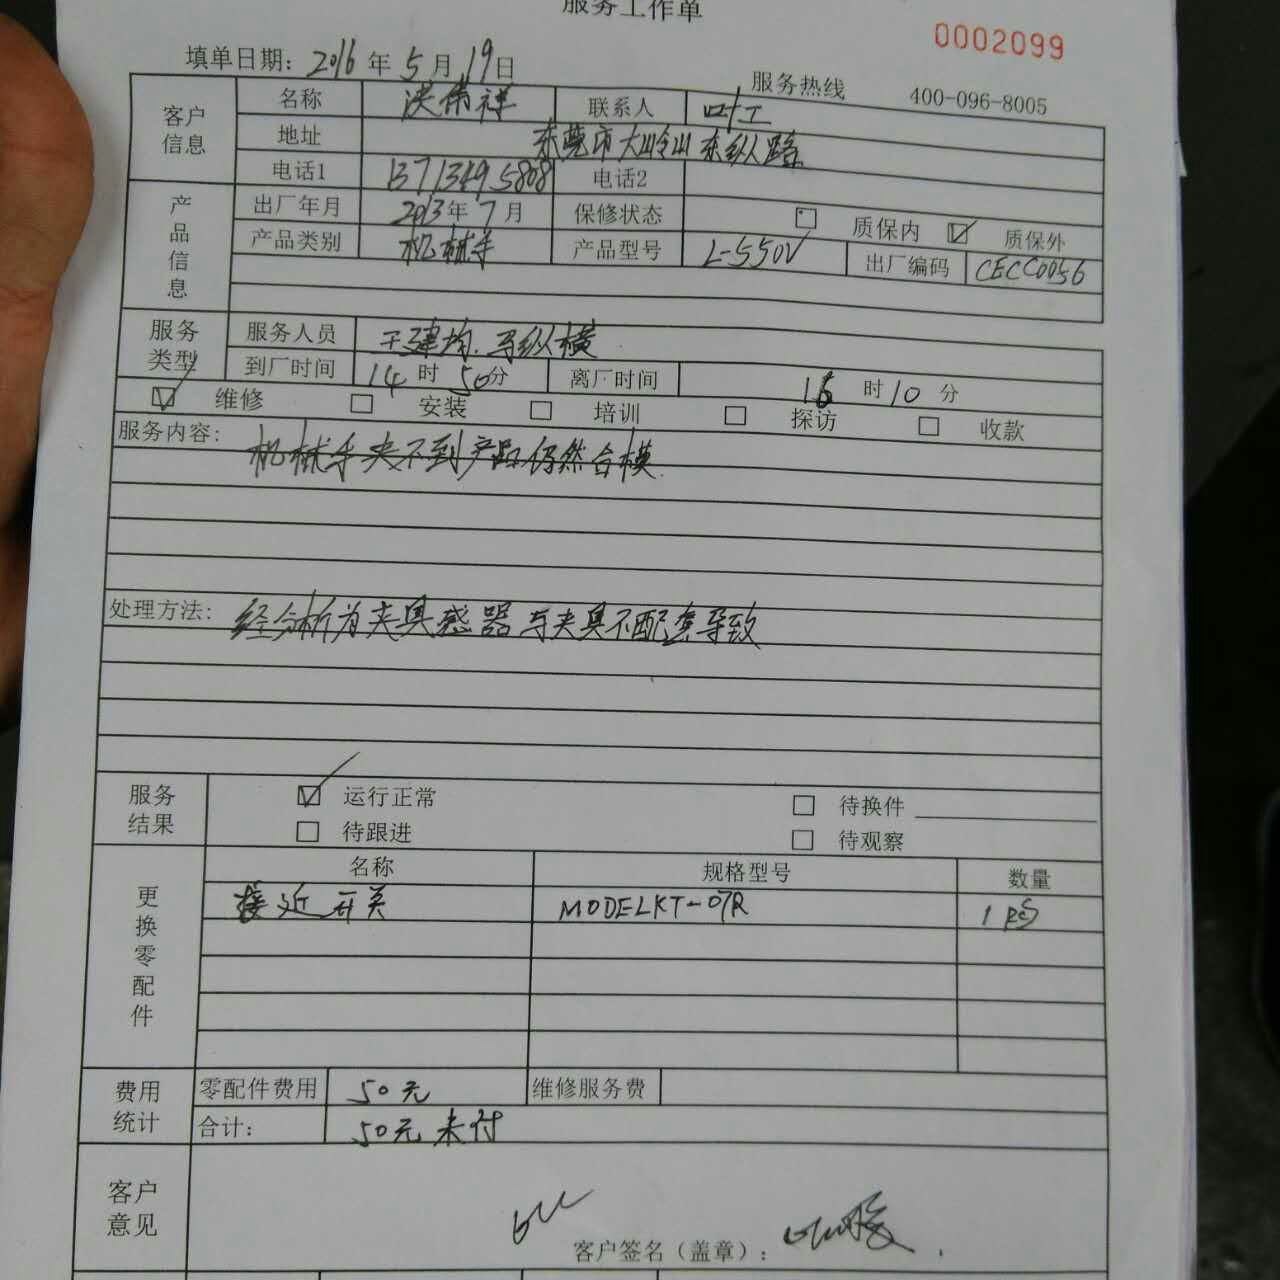 服务工作单
0002099
填单日期: 2016年5月19日
服务热线 400-096-8005
客户信息
名称 洪伟祥 联系人 叶工
地址 东莞市大岭山东纵路
电话1 13713495808 电话2
产品信息
出厂年月 2013年7月 保修状态 质保内 质保外
产品类别 机械手 产品型号 L-550V 出厂编码 CECC0056
服务类型
服务人员 王建均.马纵横
到厂时间 14时50分 离厂时间 16时10分
维修 安装 培训 探访 收款
服务内容: 机械手夹不到产品仍然合模.
处理方法: 经分析为夹具感器与夹具不配套导致
服务结果
运行正常 待换件
待跟进 待观察
更换零配件
名称 规格型号 数量
接近开关 MODELKT-07R 1
费用统计
零配件费用 50元 维修服务费
合计: 50元未付
客户意见
客户签名（盖章）: